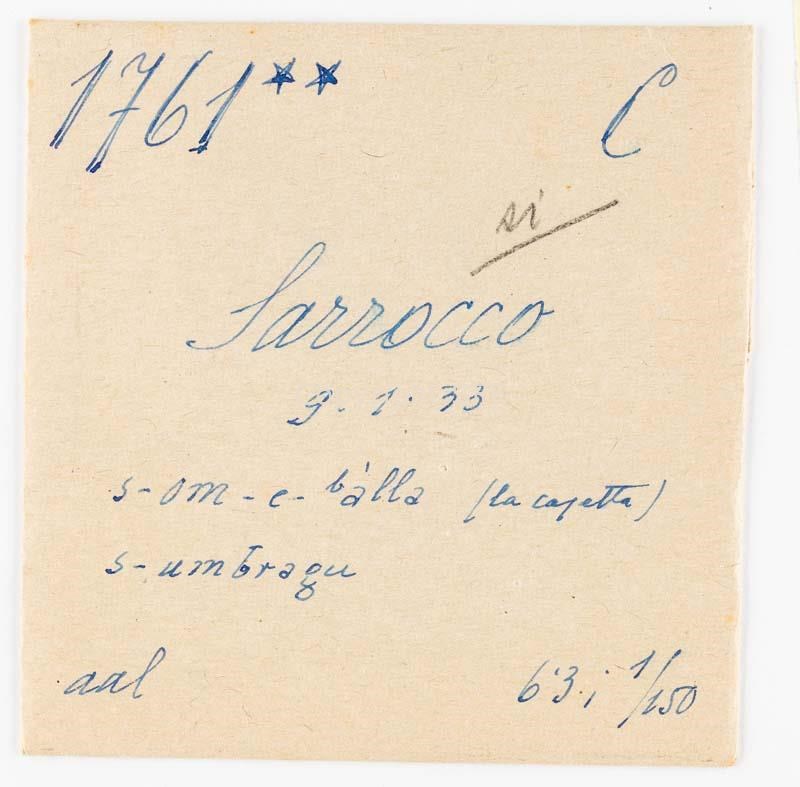 1761** C
si
Sarrocco
9. 1. 33
s-om-e-bálla (la casetta)
s-umbragu
aal 6'3; 1/150